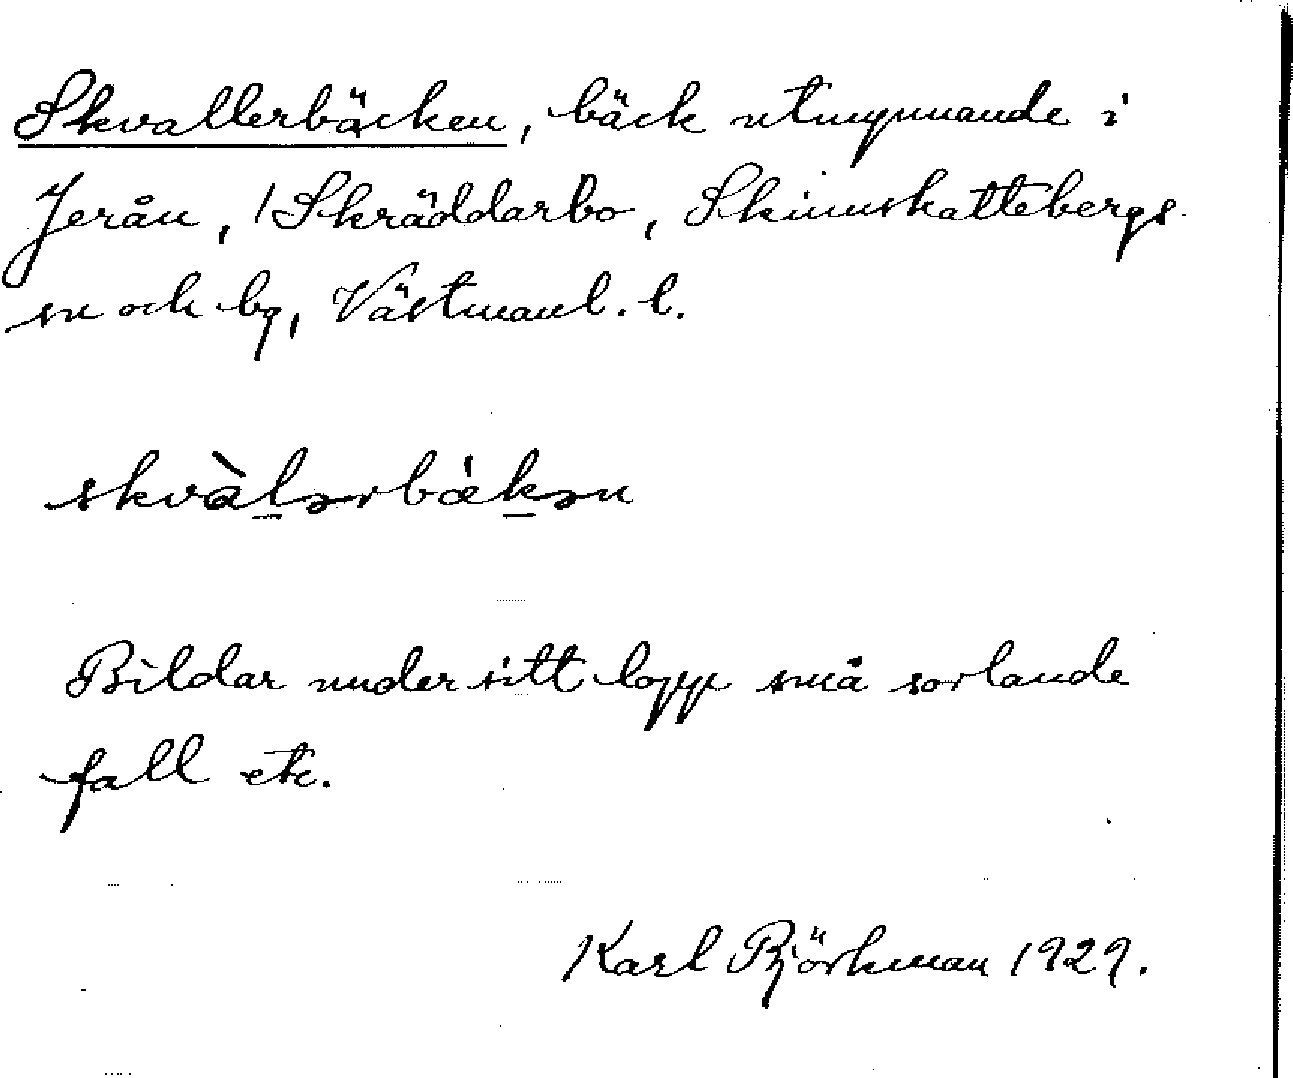 Skvallerbäcken, bäck utmynnande i
Jerån, /Skräddarbo, Skinnskattebergs
sn och bg, Västmanl. l.
skvàlərbäkən
Bildar under sitt lopp små sorlande
fall etc.
Karl Björkman 1929.